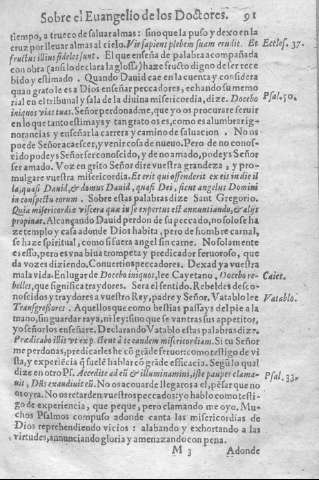 Sobre el Euangelio de los Doctores. 91
tiempo, a trueco de saluar almas: sino que la puso y dexo en la
cruz por lleuar almas al cielo. Vir sapiens plebem suam erudit. Et Eccles. 37.
fructus illius fideles sunt. El que enseña de palabra acompañada
con obra (ansi lo declara la glossa) haze fructo digno de ser rece
bido y estimado. Quando Dauid cae en la cuenta y considera
quan grato le es a Dios enseñar peccadores, echando su memo
rial en el tribunal y sala de la diuina misericordia, dize. Docebo Psal. 50.
iniquos vias tuas. Señor perdonadme, que yo os procurare seruir
en lo que tanto estimays y tan grato os es, como es alumbrar ig-
norancias y enseñar la carrera y camino de saluacion. No os
puede Señor acaescer, y venir cosa de nueuo. Pero de no conos-
cido podeys Señor ser conoscido, y de no amado, podeys Señor
ser amado. Voz en grito Señor dire vuestra grandeza, y pro-
mulgare vuestra misericordia. Et erit qui offenderit ex eis in die il
la, quasi Dauid, & domus Dauid, quasi Dei, sicut angelus Domini
in conspectu eorum. Sobre estas palabras dize Sant Gregorio.
Quia misericordiæ viscera quæ in se expertus est annuntiando, & alijs
propinat. Alcançando Dauid perdon de su peccado, no solo se ha
ze templo y casa adonde Dios habita, pero de hombre carnal,
se haze spiritual, como si fuera angel sin carne. No solamente
es esso, pero es vna biua trompeta y predicador feruoroso, que
da vozes diziendo, Conuertios peccadores. Dexad ya vuestra
mala vida. En lugar de Docebo iniquos, lee Cayetano, Docebo re- Caiet.
belles, que significa traydores. Sera el sentido. Rebeldes desco-
noscidos y traydores a vuestro Rey, padre y Señor. Vatablo lee Vatablo.
Transgressores. Aquellos que como bestias passays del pie a la
mano, sin guardar raya, ni ley: sino que se van tras sus appetitos,
yo señor los enseñare. Declarando Vatablo estas palabras dize.
Prædicabo illis vt exp. sient à te eandem misericordiam. Si tu Señor
me perdonas, predicarles he cõ grãde feruor: como testigo de vi
sta, y experiẽcia q̃ suelẽ hablar cõ grãde efficacia. Segũ lo qual
dize en otro Ps. Accedite ad eũ & illuminamini, iste pauper clama- Psal. 33.
uit, Dñs exaudiuit eũ. No os acouarde llegaros a el, pẽsar que no
os oyra. No os retarden vuestros peccados: yo hablo como testi-
go de experiencia, que peque, pero clamando me oyo. Mu-
chos Psalmos compuso adonde canta las misericordias de
Dios reprehendiendo vicios: alabando y exhortando a las
virtudes, annunciando gloria y amenazando con pena.
M 3 Adonde